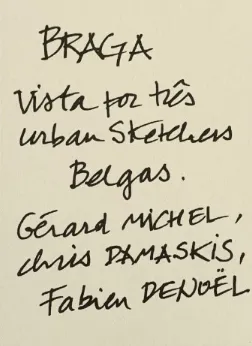 BRAGA
Vista por três
urban Sketchers
Belgas.
Gérard MICHEL,
chris DAMASKIS,
Fabien DENOËL